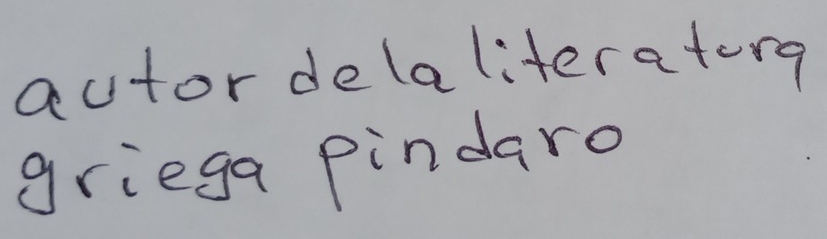 autor dela literatura
griega pindaro